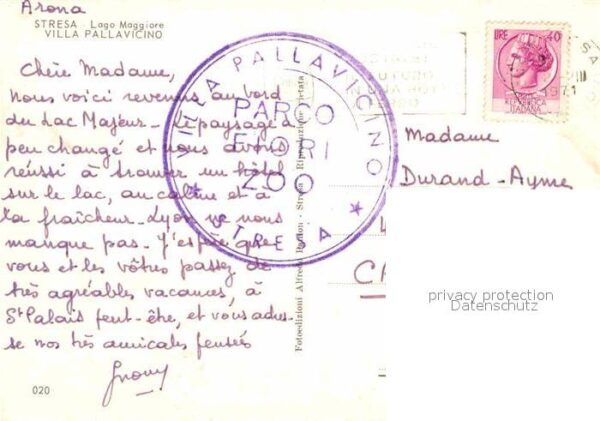 Arona
STRESA Lago Maggiore
VILLA PALLAVICINO
Chère Madame,
nous voici revenus au bord
du Lac Majeur - Le paysage a
peu changé et nous avons
réussi à trouver un hôtel
sur le lac, au calme et à
la fraîcheur. Lyon ne nous
manque pas. J'espère que
vous et les vôtres passez de
très agréables vacances, à
St Palais peut-être, et vous adres-
se nos très amicales pensées
020
VILLA PALLAVICINO
PARCO
FIORI
ZOO
* STRESA *
Fotoedizioni Alfredo - Stresa - Riproduzione vietata
LIRE 40
REPUBBLICA
ITALIANA
1971
Madame
Durand-Ayme
privacy protection
Datenschutz